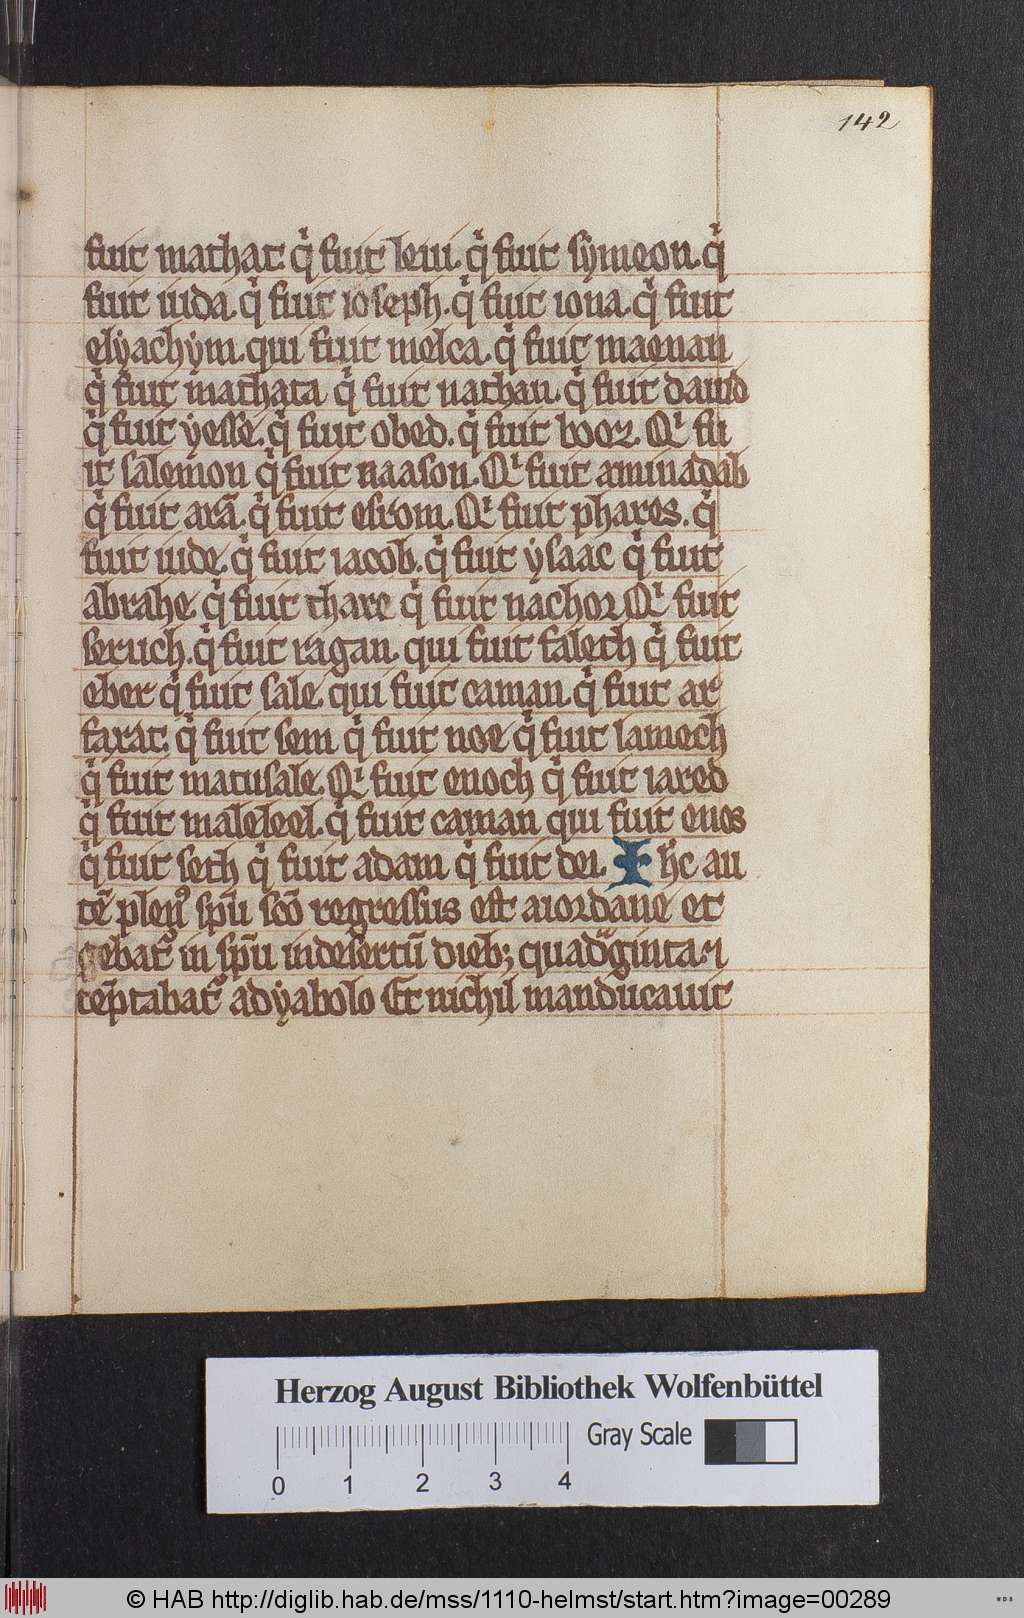 142
fuit mathat. qͥ fuit leui. qͥ fuit sẏmeon. qͥ
fuit iuda. qͥ fuit ioseph. qͥ fuit iona. qͥ fuit
elẏachẏm. qui fuit melca. qͥ fuit maenan
qͥ fuit mathata qͥ fuit nathan. qͥ fuit dauid
qͥ fuit ẏesse. qͥ fuit obed. qͥ fuit booz. Qͥ fu
it salemon qͥ fuit naason. Qͥ fuit aminadab
qͥ fuit arā. qͥ fuit esrom. Qͥ fuit phares. qͥ
fuit iude. qͥ fuit iacob. qͥ fuit ẏsaac qͥ fuit
abrahe qͥ fuit thare qͥ fuit nachor Qͥ fuit
seruch. qͥ fuit ragau. qui fuit falech qͥ fuit
eber qͥ fuit sale. qui fuit cainan. qͥ fuit ar
faxat. qͥ fuit sem qͥ fuit noe qͥ fuit lamech
qͥ fuit matusale. Qͥ fuit enoch qͥ fuit iared
qͥ fuit maleleel. qͥ fuit cainan qui fuit enos
qͥ fuit seth qͥ fuit adam qͥ fuit dei. I hc̄ au
tē plenꝰ spū scō regressus est aiordane et
gebat᷑ in spū indesertū dieb; quadͣginta ⁊
tēptabat᷑ adẏabolo Et nichil manducauit
Herzog August Bibliothek Wolfenbüttel
Gray Scale
0 1 2 3 4
© HAB http://diglib.hab.de/mss/1110-helmst/start.htm?image=00289